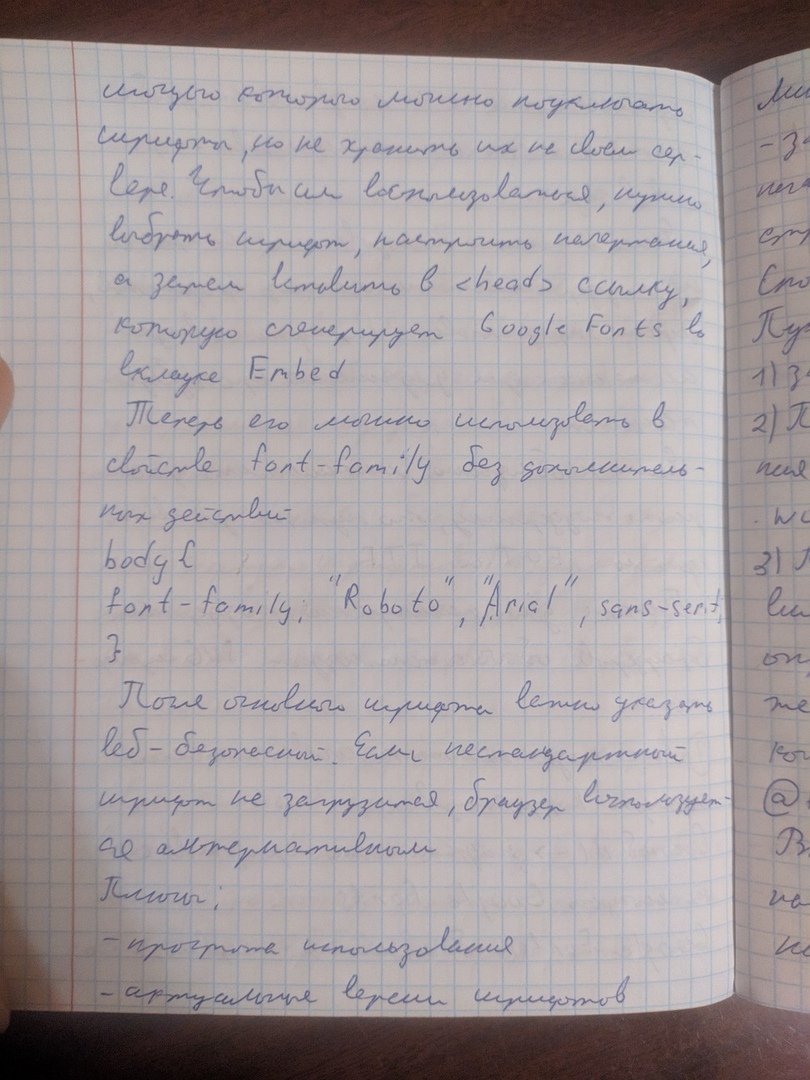 мощью которого можно подключать
шрифты, но не хранить их на своем сер-
вере. Чтобы им воспользоваться, нужно
выбрать шрифт, настроить начертания,
а затем вставить в <head> ссылку,
которую сгенерирует Google Fonts во
вкладке Embed
Теперь его можно использовать в
свойстве font-family без дополнитель-
ных действий
body {
font-family: "Roboto", "Arial", sans-serif;
}
После основного шрифта важно указать
веб-безопасный. Если нестандартный
шрифт не загрузится, браузер воспользует-
ся альтернативным
Плюсы:
- простота использования
- актуальные версии шрифтов
1)
2)
3)